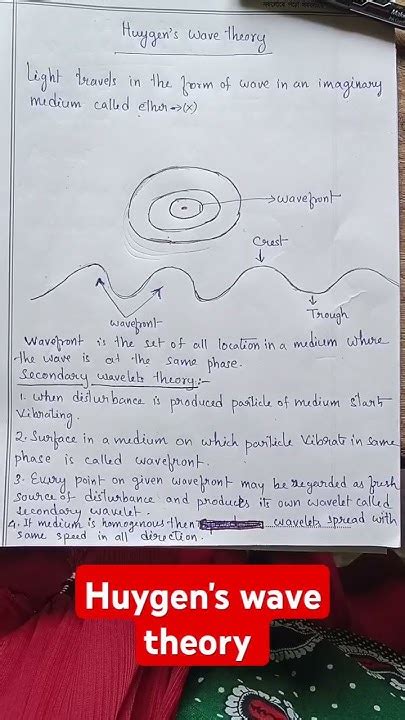 Huygen's wave theory
Light travels in the form of wave in an imaginary
medium called ether→(x)
wavefront
Crest
Trough
wavefront
Wavefront is the set of all location in a medium where
the wave is at the same phase.
Secondary wavelets theory:-
1. when disturbance is produced particle of medium start
vibrating.
2. Surface in a medium on which particle vibrate in same
phase is called wavefront.
3. Every point on given wavefront may be regarded as fresh
source of disturbance and produces its own wavelet called
secondary wavelet.
4. If medium is homogenous then wavelets spread with
same speed in all direction.
Huygen's wave
theory